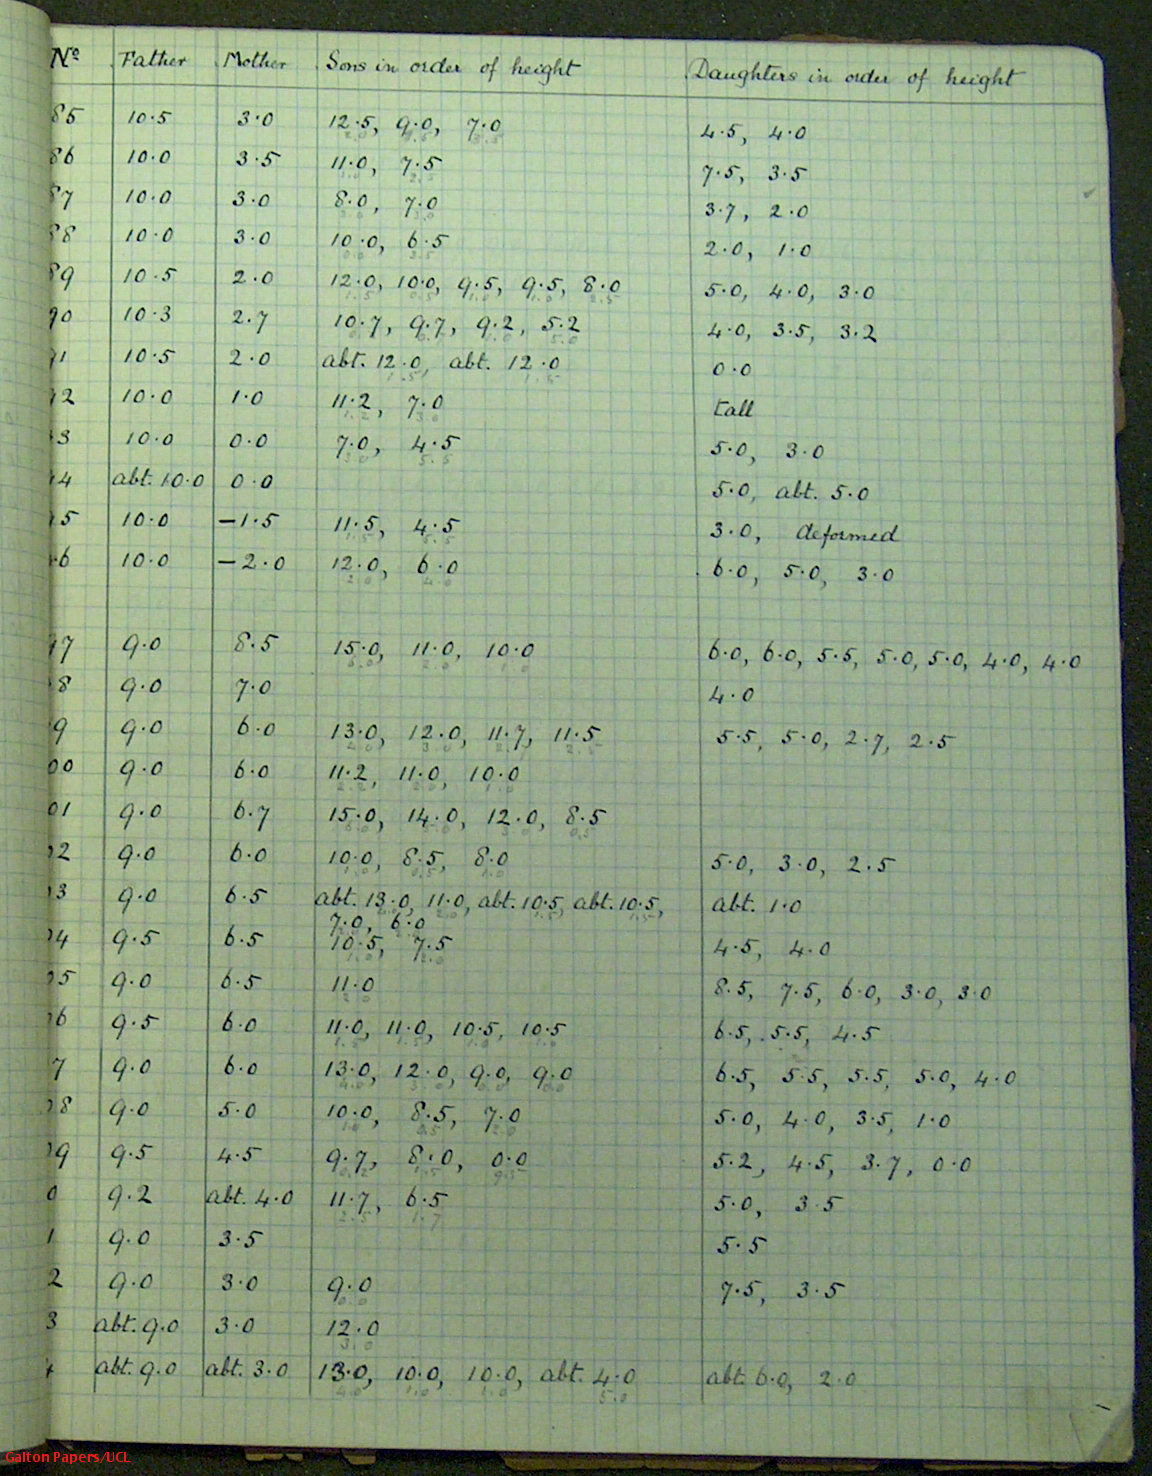 Nº Father Mother Sons in order of height Daughters in order of height
85 10.5 3.0 12.5, 9.0, 7.0 4.5, 4.0
86 10.0 3.5 11.0, 7.5 7.5, 3.5
87 10.0 3.0 8.0, 7.0 3.7, 2.0
88 10.0 3.0 10.0, 6.5 2.0, 1.0
89 10.5 2.0 12.0, 10.0, 9.5, 9.5, 8.0 5.0, 4.0, 3.0
90 10.3 2.7 10.7, 9.7, 9.2, 5.2 4.0, 3.5, 3.2
1 10.5 2.0 abt. 12.0, abt. 12.0 0.0
2 10.0 1.0 11.2, 7.0 tall
3 10.0 0.0 7.0, 4.5 5.0, 3.0
4 abt. 10.0 0.0 5.0, abt. 5.0
5 10.0 -1.5 11.5, 4.5 3.0, deformed
6 10.0 -2.0 12.0, 6.0 6.0, 5.0, 3.0
97 9.0 8.5 15.0, 11.0, 10.0 6.0, 6.0, 5.5, 5.0, 5.0, 4.0, 4.0
8 9.0 7.0 4.0
9 9.0 6.0 13.0, 12.0, 11.7, 11.5 5.5, 5.0, 2.7, 2.5
00 9.0 6.0 11.2, 11.0, 10.0
01 9.0 6.7 15.0, 14.0, 12.0, 8.5
2 9.0 6.0 10.0, 8.5, 8.0 5.0, 3.0, 2.5
3 9.0 6.5 abt. 13.0, 11.0, abt. 10.5, abt. 10.5, abt. 1.0
7.0, 6.0
4 9.5 6.5 10.5, 7.5 4.5, 4.0
5 9.0 6.5 11.0 8.5, 7.5, 6.0, 3.0, 3.0
6 9.5 6.0 11.0, 11.0, 10.5, 10.5 6.5, 5.5, 4.5
7 9.0 6.0 13.0, 12.0, 9.0, 9.0 6.5, 5.5, 5.5, 5.0, 4.0
8 9.0 5.0 10.0, 8.5, 7.0 5.0, 4.0, 3.5, 1.0
9 9.5 4.5 9.7, 8.0, 0.0 5.2, 4.5, 3.7, 0.0
0 9.2 abt. 4.0 11.7, 6.5 5.0, 3.5
1 9.0 3.5 5.5
2 9.0 3.0 9.0 7.5, 3.5
3 abt. 9.0 3.0 12.0
4 abt. 9.0 abt. 3.0 13.0, 10.0, 10.0, abt. 4.0 abt. 6.0, 2.0
Galton Papers/UCL